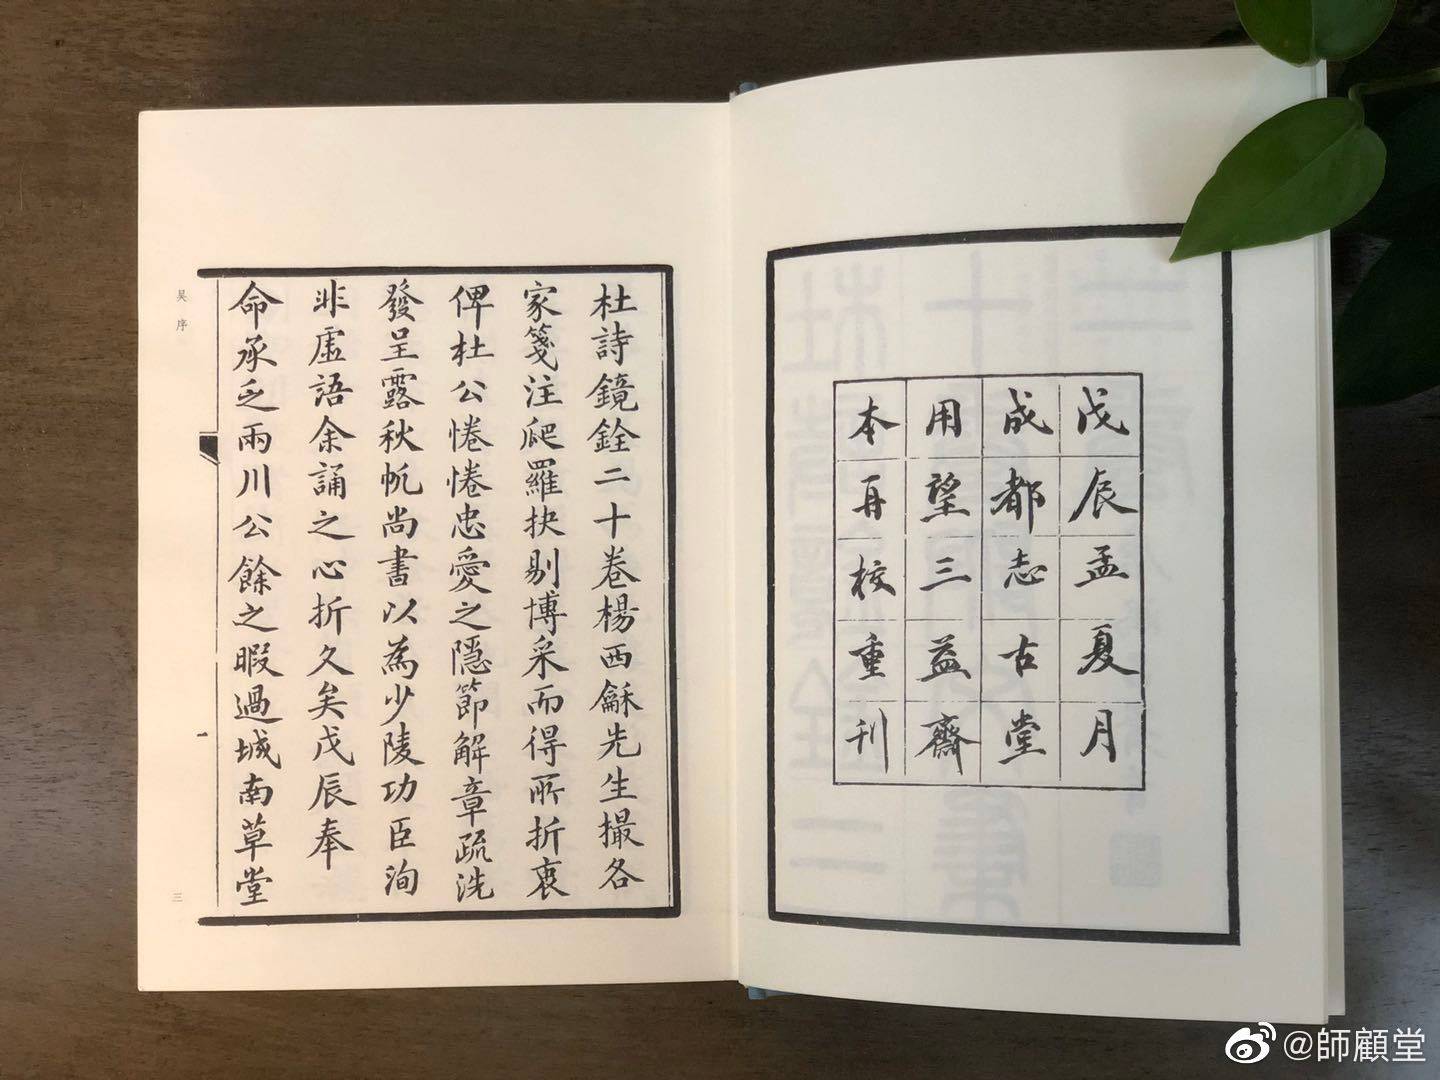 戊辰孟夏月
成都志古堂
用望三益齋
本再校重刊
杜詩鏡銓二十卷楊西龢先生撮各
家箋注爬羅抉剔博采而得所折衷
俾杜公惓惓忠愛之隱節解章疏洗
發呈露秋帆尚書以為少陵功臣洵
非虛語余誦之心折久矣戊辰奉
命承乏兩川公餘之暇過城南草堂
吴序
一
三
@師顧堂